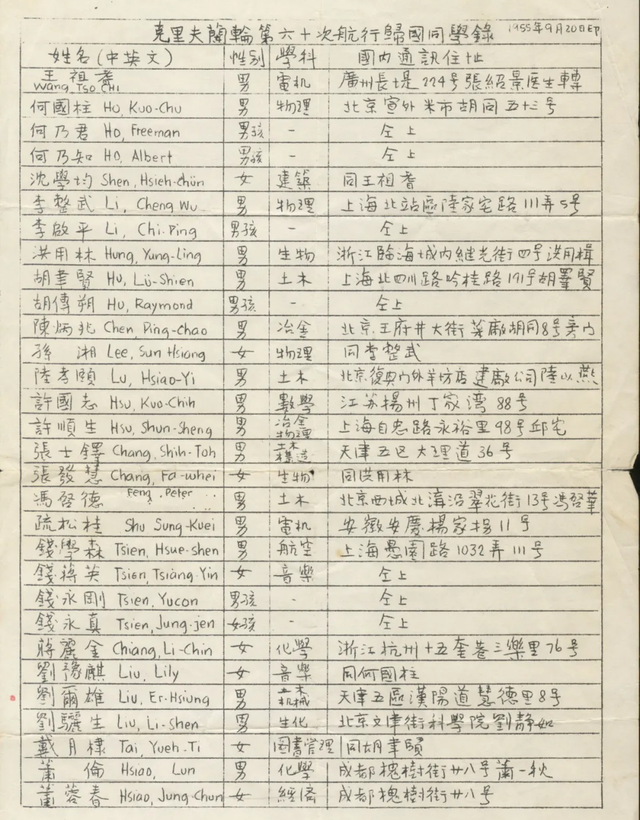 克里夫蘭輪第六十次航行歸國同學錄 1955年9月20日印
姓名(中英文) 性別 學科 國內通訊住址
王祖耆 Wang, Tso Chi 男 電机 廣州長堤224号張紹景医生轉
何國柱 Ho, Kuo-Chu 男 物理 北京宣外米市胡同五十三号
何乃君 Ho, Freeman 男孩 - 仝上
何乃知 Ho, Albert 男孩 - 仝上
沈學均 Shen, Hsieh-Chün 女 建築 同王祖耆
李整武 Li, Cheng Wu 男 物理 上海北站區陸家宅路111弄5号
李啟平 Li, Chi-Ping 男孩 - 仝上
洪用林 Hung, Yung-Ling 男 生物 浙江臨海城內继光街四号洪用楫
胡聿賢 Hu, Lü-Shien 男 土木 上海北四川路吟桂路191号胡睪賢
胡傳朔 Hu, Raymond 男孩 - 仝上
陳炳兆 Chen, Ping-Chao 男 冶金 北京王府井大街菜廠胡同8号旁门
孫湘 Lee, Sun Hsiang 女 物理 同李整武
陸孝頤 Lu, Hsiao-Yi 男 土木 北京復興門外羊坊店建廠公司陸以燕
許國志 Hsu, Kuo-Chih 男 數學 江苏揚州丁家湾88号
許順生 Hsu, Shun-Sheng 男 冶金物理 上海自忠路永裕里98号邱宅
張士鐸 Chang, Shih-Toh 男 土木構造 天津五区大理道36号
張發慧 Chang, Fa-whei 女 生物 同洪用林
馮启德 Feng, Peter 男 土木 北京西城北海沿翠花街13号馮启華
疏松桂 Shu Sung-Kuei 男 電机 安徽安慶楊家拐11号
錢學森 Tsien, Hsue-shen 男 航空 上海愚園路1032弄111号
錢蔣英 Tsien, Tsiang Yin 女 音樂 仝上
錢永剛 Tsien, Yucon 男孩 - 仝上
錢永真 Tsien, Jung-jen 女孩 - 仝上
蔣麗金 Chiang, Li-Chin 女 化學 浙江杭州十五奎巷三樂里76号
劉豫麒 Liu, Lily 女 音樂 同何國柱
劉爾雄 Liu, Er-Hsiung 男 机械 天津五區漢陽道慧德里8号
劉驪生 Liu, Li-Shen 男 生化 北京文津街科學院劉静如
戴月棣 Tai, Yueh-Ti 女 図書管理 同胡聿賢
蕭倫 Hsiao, Lun 男 化學 成都槐樹街廿八号蕭一秋
蕭蓉春 Hsiao, Jung-Chun 女 經濟 成都槐樹街廿八号